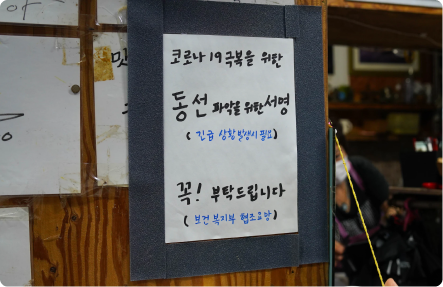 코로나19 극복을 위한
동선 파악을 위한 서명
(긴급 상황 발생시 필요)
꼭! 부탁드립니다
(보건복지부 협조요망)
맛